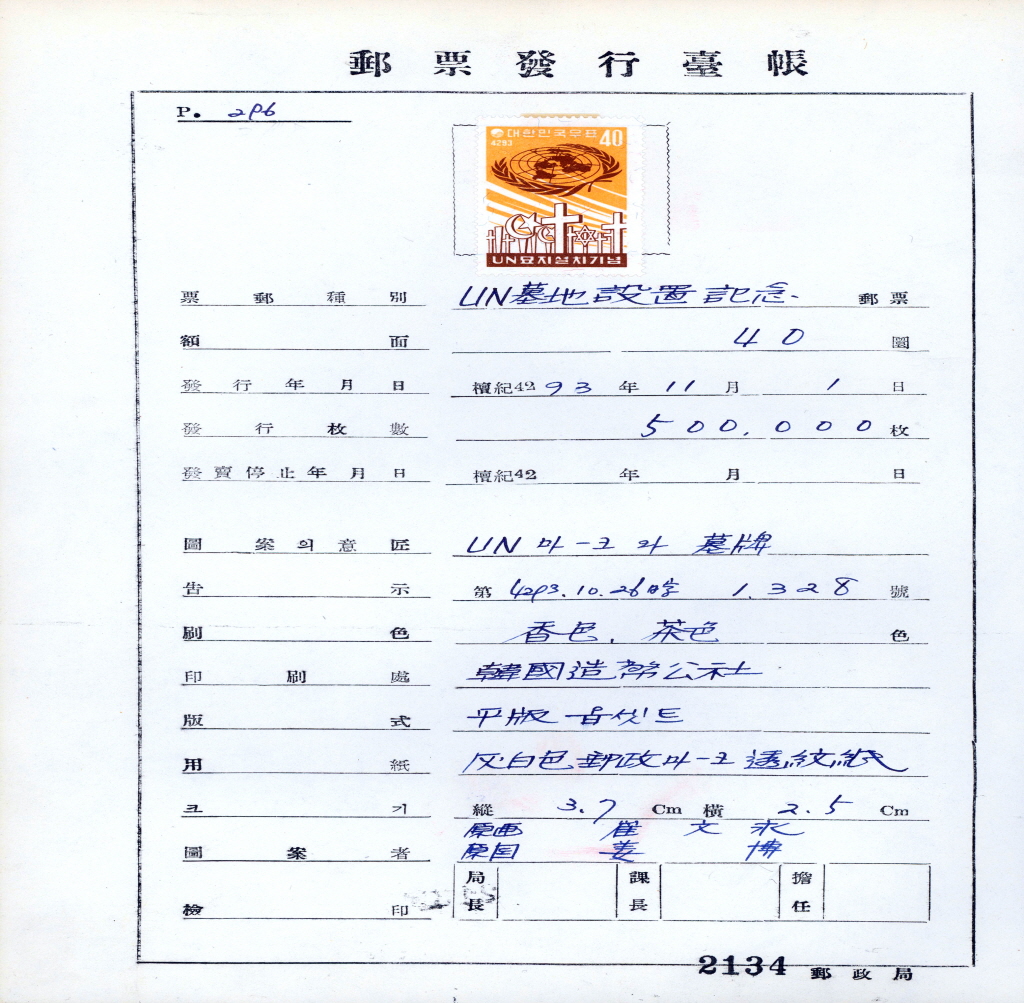 郵票發行臺帳
P. 296
대한민국우표 40
4293
UN묘지설치기념
票郵種別 UN墓地設置記念. 郵票
額面 40 圜
發行年月日 檀紀4293年 11月 1日
發行枚數 500,000枚
發賣停止年月日 檀紀42 年 月 日
圖案의意匠 UN 마-크와 墓牌
告示 第 4293.10.26字 1,328 號
刷色 香色, 茶色 色
印刷處 韓國造幣公社
版式 平版 옵셋트
用紙 灰白色 郵政마-크 透紋紙
크기 縱 3.7 Cm 橫 2.5 Cm
原画 崔文永
圖案者 原図 姜博
檢印 局長 課長 擔任
2134 郵政局